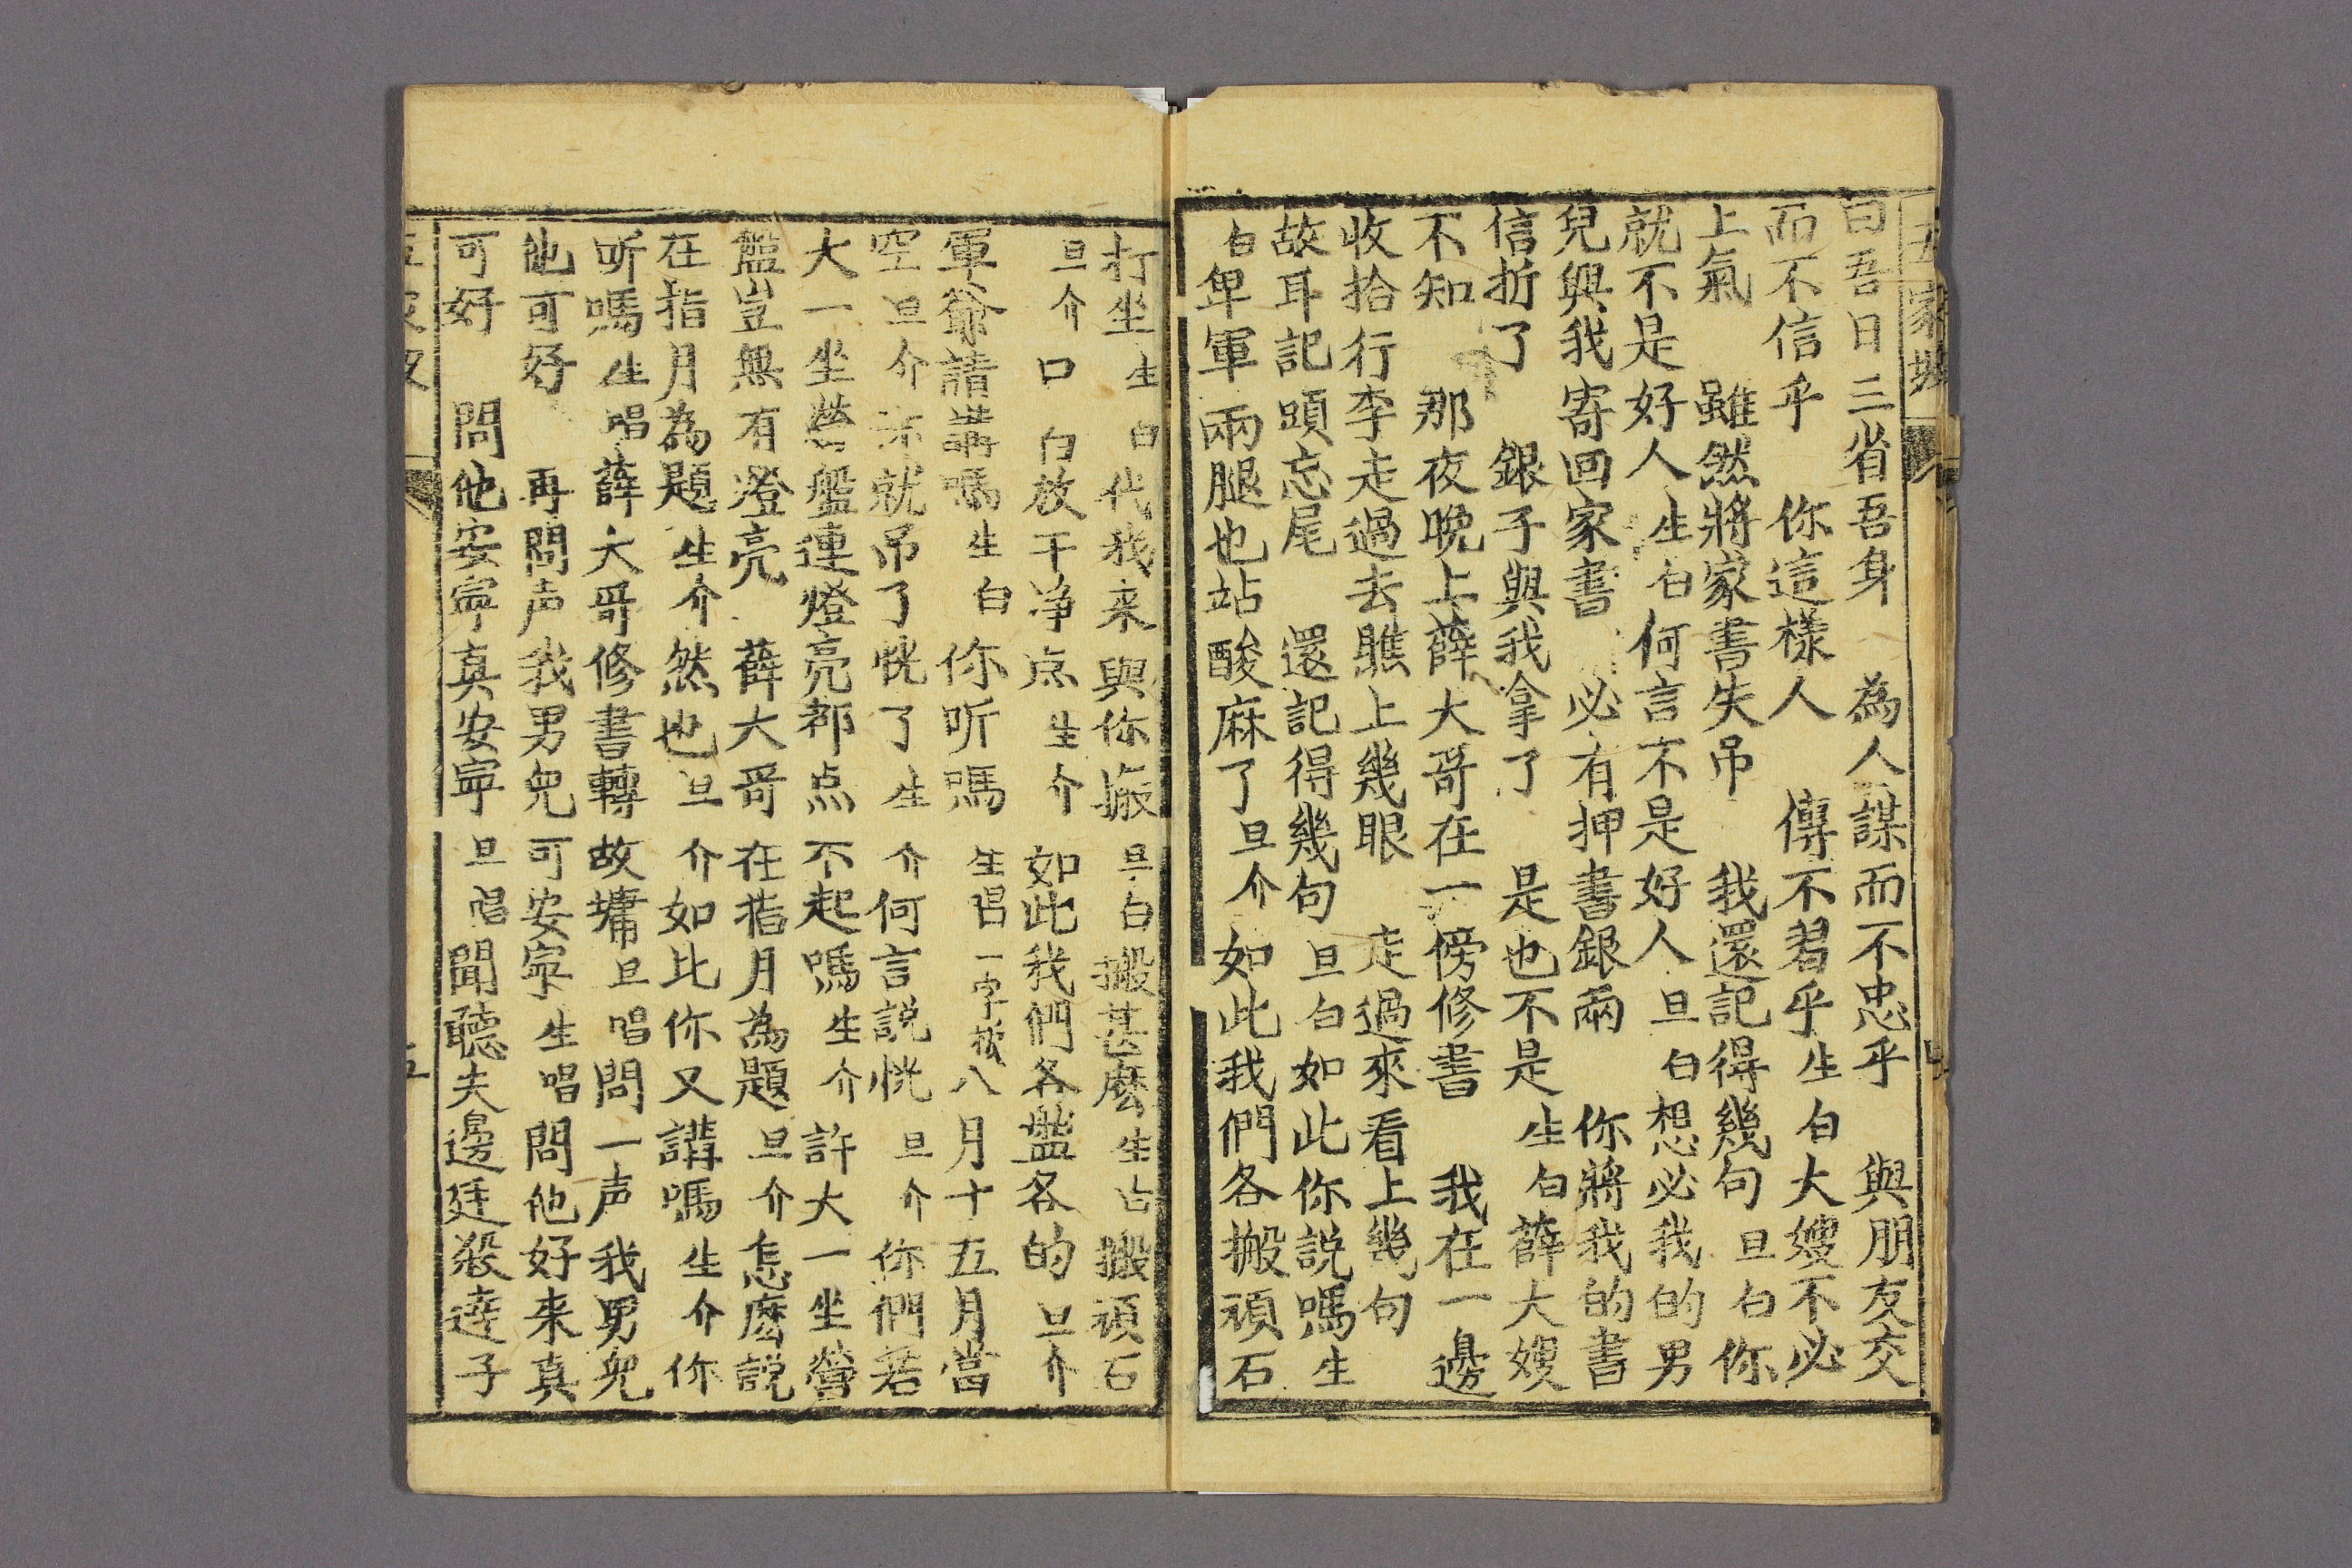 曰吾日三省吾身　為人謀而不忠乎　與朋友交
而不信乎　你這樣人　傳不習乎生白大嫂不必
上氣　雖然將家書失吊　我還記得幾句旦白你
就不是好人生白何言不是好人旦白想必我的男
兒與我寄回家書　必有押書銀兩　你將我的書
信折了　銀子與我拿了　是也不是生白薛大嫂
不知　那夜晚上薛大哥在一傍修書　我在一邊
收拾行李走過去瞧上幾眼　走過來看上幾句
故耳記頭忘尾　還記得幾句旦白如此你説嗎生
白卑軍兩腿也站酸麻了旦介如此我們各搬頑石
打坐生白代我来與你搬旦白搬甚麽生白搬頑石
旦介口白放干净点生介如此我們各盤各的旦介
軍爺請講嗎生白你听嗎生唱一字板八月十五月當
空旦介你就吊了恍了生介何言説恍旦介你們若
大一坐營盤連燈亮都点不起嗎生介許大一坐營
盤豈無有燈亮　薛大哥在指月為題旦介怎麽説
在指月為題生介然也旦介如比你又講嗎生介你
听嗎生唱薛大哥修書轉故墉旦唱問一声我男兒
他可好　再問声我男兒可安寧生唱問他好来真
可好　問他安寧真安寧旦唱聞聽夫邊廷殺逹子
五